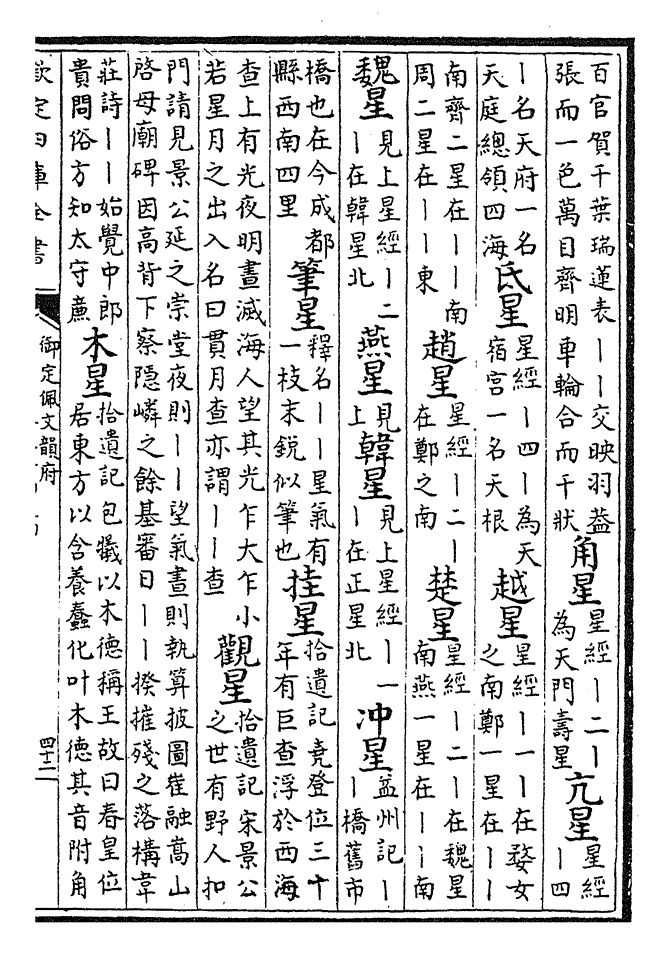 百官賀千葉瑞蓮表丨丨交映羽葢張而一色萬目齊明車輪合而千狀 角星 星經丨二丨為天門壽星 亢星 星經丨四
丨名天府一名天庭總領四海 氐星 星經丨四丨為天宿宮一名天根 越星 星經丨一丨在婺女之南鄭一星在丨丨
南齊二星在丨丨南周二星在丨丨東 趙星 星經丨二丨在鄭之南 楚星 星經丨二丨在魏星南燕一星在丨丨南
魏星 見上星經丨二丨在韓星北 燕星 見上 韓星 見上星經丨一丨在正星北 冲星 益州記丨丨橋舊市
橋也在今成都縣西南四里 筆星 釋名丨丨星氣有一枝末鋭似筆也 挂星 拾遺記堯登位三十年有巨查浮於西海
查上有光夜明晝滅海人望其光乍大乍小若星月之出入名曰貫月查亦謂丨丨查 觀星 拾遺記宋景公之世有野人扣
門請見景公延之崇堂夜則丨丨望氣晝則執算披圖崔融嵩山啓母廟碑因高背下察隱嶙之餘基審日丨丨揆摧殘之落構韋
莊詩丨丨始覺中郎貴問俗方知太守㢘 木星 拾遺記包犧以木德稱王故曰春皇位居東方以含養蠢化叶木德其音附角
欽定四庫全書
御定佩文韻府
四十二